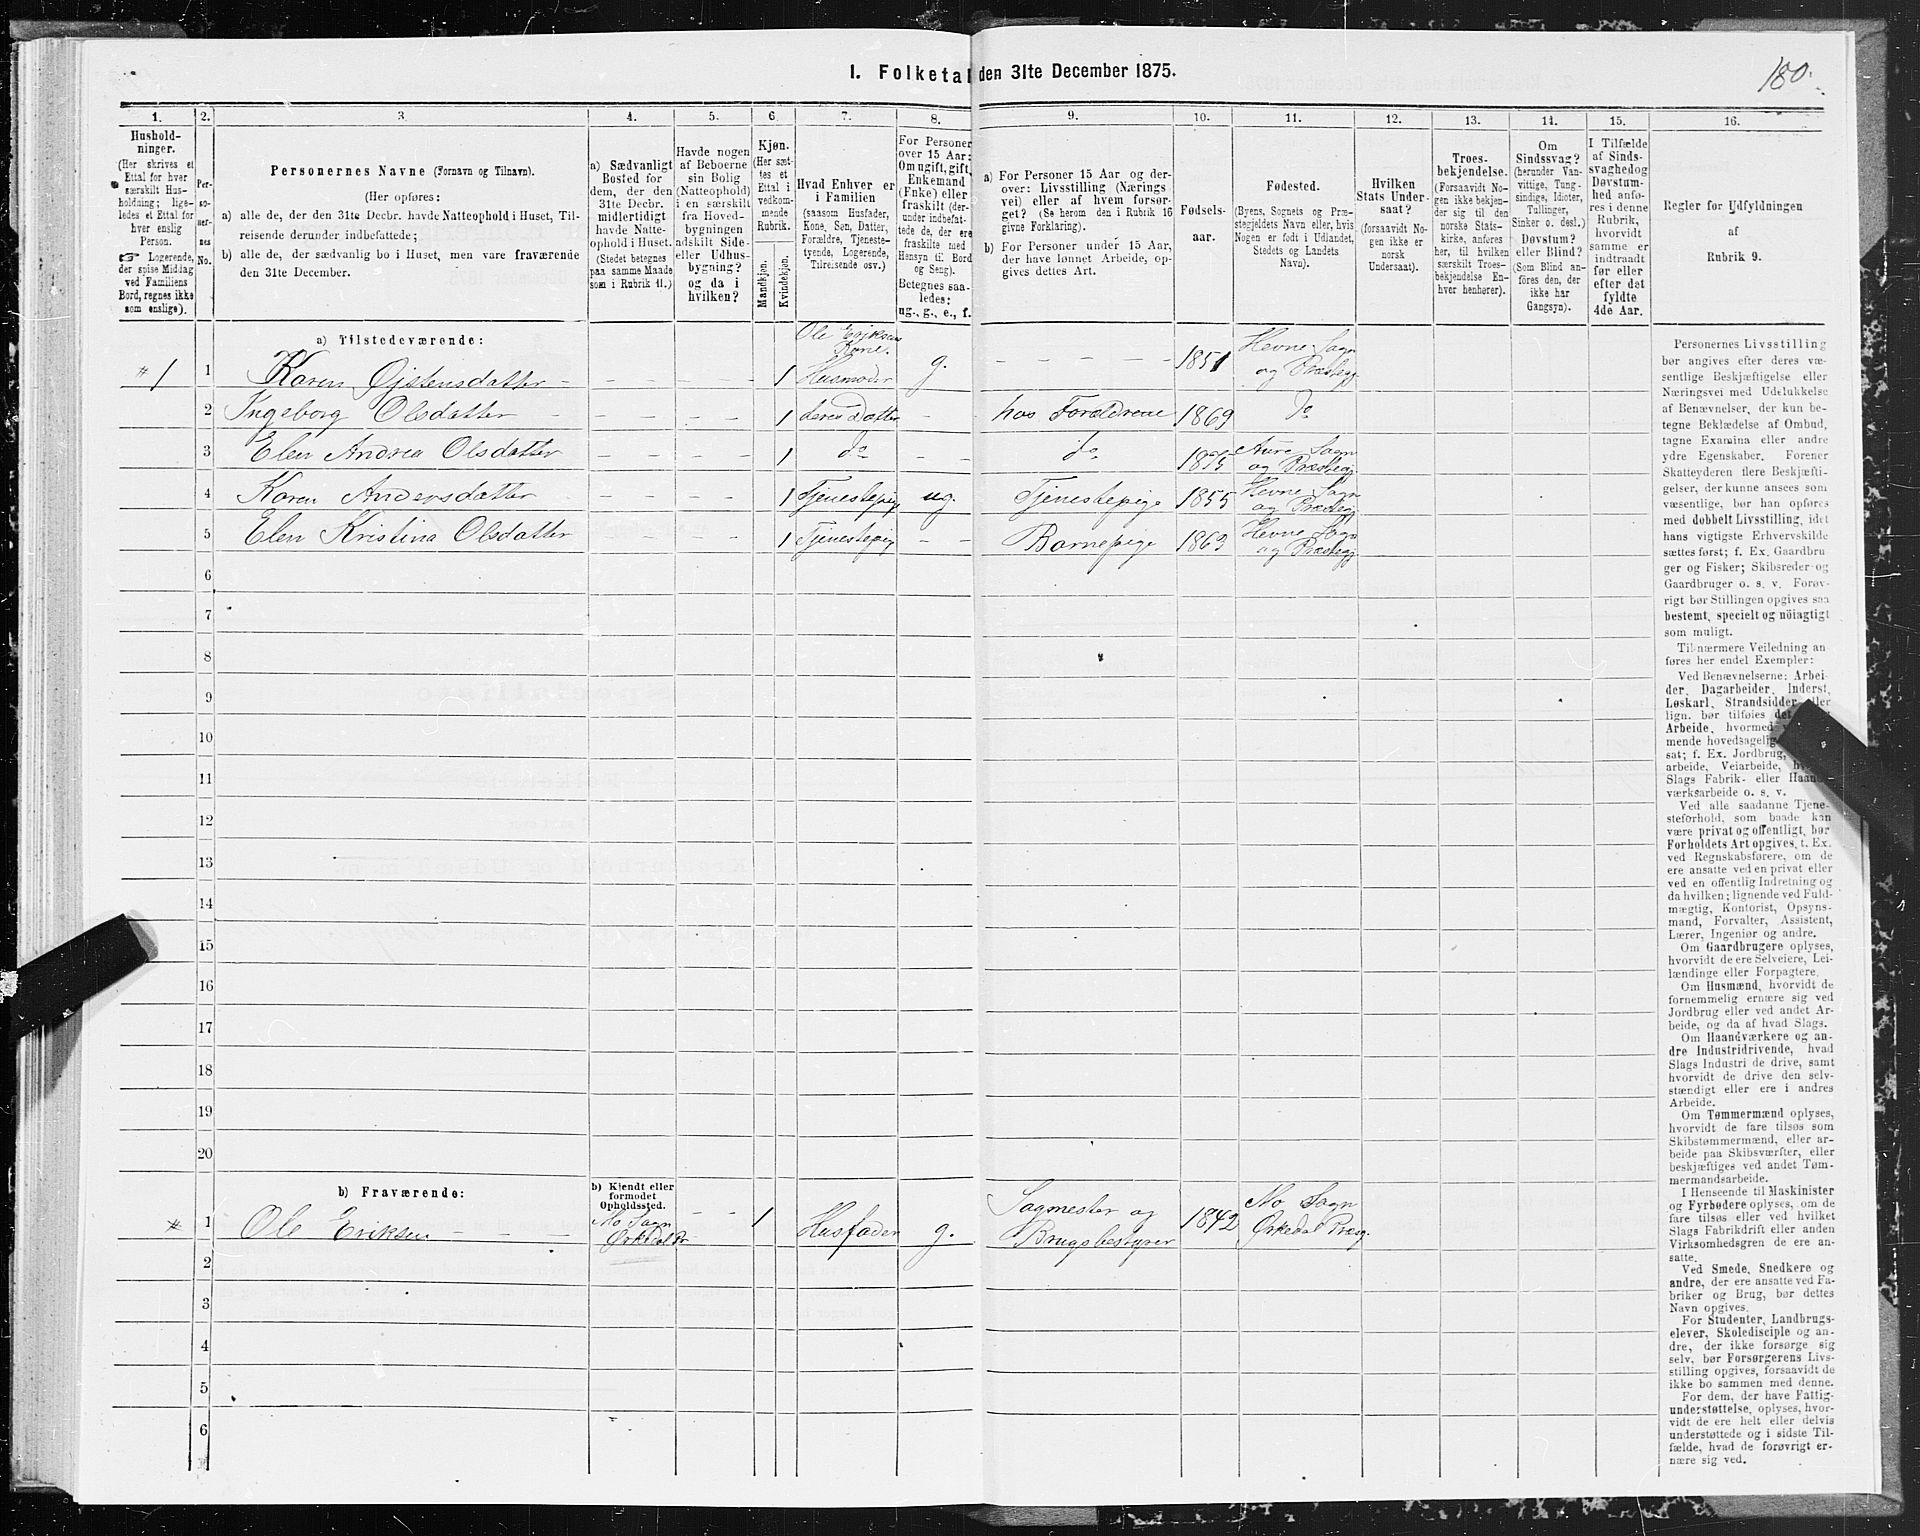 1. Folketal den 31te December 1875.
180.
1.
2.
3.
4.
5.
6.
7.
8.
9.
10.
11.
12.
13.
14.
15.
16.
Hushold-
ninger.
(Her skrives et
Ettal for hver
særskilt Hus-
holdning; lige-
ledes et Ettal for
hver enslig
Person.
☞ Logerende,
der spise Middag
ved Familiens
Bord, regnes ikke
som enslige).
Per-
soner-
nes
No.
Personernes Navne (Fornavn og Tilnavn).
(Her opføres:
a) alle de, der den 31te Decbr. havde Natteophold i Huset, Til-
reisende derunder indbefattede;
b) alle de, der sædvanlig bo i Huset, men vare fraværende
den 31te December.
a) Sædvanligt
Bosted for
dem, der den
31te Decbr.
midlertidigt
havde Natte-
ophold i Huset.
(Stedet betegnes
paa samme Maade
som i Rubrik 11.)
Havde nogen
af Beboerne
sin Bolig
(Natteophold)
i en særskilt
fra Hoved-
bygningen
adskilt Side-
eller Udhus-
bygning?
og da i
hvilken?
Kjøn.
(Her sæt-
tes et
Ettal i
vedkom-
mende
Rubrik.
Mandkjøn.
Kvindekjøn.
Hvad Enhver er
i Familien
(saasom Husfader,
Kone, Søn, Datter,
Forældre, Tjeneste-
tyende, Logerende,
Tilreisende osv.)
For Personer
over 15 Aar:
Om ugift, gift,
Enkemand
(Enke) eller
fraskilt (der-
under indbefat-
tede de, der ere
fraskilte med
Hensyn til Bord
og Seng).
Betegnes saa-
ledes:
ug., g., e., f.
a) For Personer 15 Aar og der-
over: Livsstilling (Nærings
vei) eller af hvem forsør-
get? (Se herom den i Rubrik 16
givne Forklaring).
b) For Personer under 15 Aar,
der have lønnet Arbeide, op-
gives dettes Art.
Fødsels-
aar.
Fødested.
(Byens, Sognets og Præ-
stegjeldets Navn eller, hvis
Nogen er født i Udlandet,
Stedets og Landets
Navn).
Hvilken
Stats Under-
saat?
(forsaavidt No-
gen ikke er
norsk
Undersaat).
Troes-
bekjendelse.
(Forsaavidt No-
gen ikke bekjen-
der sig til den
norske Stats-
kirke, anføres
her, til hvilken
særskilt Troes-
bekjendelse En-
hver henhører).
Om
Sindssvag?
(herunder Van-
vittige, Tung-
sindige, Idioter,
Tullinger,
Sinker o. desl.)
Døvstum?
eller Blind?
(Som Blind an-
føres den, der
ikke har
Gangsyn).
I Tilfælde
af Sinds-
svaghed og
Døvstum-
hed anfø-
res i denne
Rubrik,
hvorvidt
samme er
indtraadt
før eller
efter det
fyldte
4de Aar.
Regler for Udfyldningen
af
Rubrik 9.
a) Tilstedeværende:
Ole Eriksens
Kone.
1 1 Karen Ojstensdatter - - - - - 1 Husmoder g. - - - - - 1851 Hevne Sogn
og Præstegj.
2 Ingeborg Olsdatter - - - - - - 1 deres Datter - hos Forældrene 1869 do
3 Elen Andrea Olsdatter - - - - - 1 do - - do 1875 Aure Sogn
og Præstegj.
4 Karen Andersdatter - - - - - 1 Tjenestepig ug. Tjenestepige 1855 Hevne Sogn
og Præstegj
5 Elen Kristina Olsdatter - - - - - 1 Tjenestepig - - Barnepige 1863 Hevne Sogn
og Præstegj
6
7
8
9
10
11
12
13
14
15
16
17
18
19
20
b) Fraværende:
b) Kjendt eller
formodet
Opholdssted.
1 Ole Eriksen - - - - Mo Sogn
Ørkedal Pr - - 1 Husfader g. Sagmester og
Brugsbestyrer 1842 Mo Sogn
Ørkedal Præsg.
2
3
4
5
6
Personernes Livsstilling
bør angives efter deres væ-
sentlige Beskjæftigelse eller
Næringsvei med Udelukkelse
af Benævnelser, der kun be-
tegne Beklædelse af Ombud,
tagne Examina eller andre
ydre Egenskaber. Forener
Skatteyderen flere Beskjæfti-
gelser, der kunne ansees som
væsentlige, bør han opføres
med dobbelt Livsstilling, idet
hans vigtigste Erhvervskilde
sættes først; f. Ex. Gaardbru
ger og Fisker; Skibsreder og
Gaardbruger o. s. v. Forøv-
rigt bør Stillingen opgives saa
bestemt, specielt og nöiagtigt
som muligt.
Til nærmere Veiledning an
føres her endel Exempler:
Ved Benævnelserne: Arbei-
der, Dagarbeider, Inderst,
Løskarl, Strandsidder eller
lign. bør tilføies det
Arbeide, hvormed
mende hovedsagelig
sat; f. Ex. Jordbrug,
arbeide, Veiarbeide,
Slags Fabrik- eller Haand-
værksarbeide o. s. v.
Ved alle saadanne Tjene-
steforhold, som baade kan
være privat og offentligt, bør
Forholdets Art opgives, t. Ex.
ved Regnskabsførere, om de
ere ansatte ved en privat eller
ved en offentlig Indretning og
da hvilken; lignende ved Fuld-
mægtig, Kontorist, Opsyns-
mand, Forvalter, Assistent,
Lærer, Ingeniør og andre.
Om Gaardbrugere oplyses,
hvorvidt de ere Selveiere, Lei-
lændinge eller Forpagtere.
Om Husmænd, hvorvidt de
fornemmelig ernære sig ved
Jordbrug eller ved andet Ar-
beide, og da af hvad Slags.
Om Haandværkere og an-
dre Industridrivende, hvad
Slags Industri de drive, samt
hvorvidt de drive den selv-
stændigt eller ere i andres
Arbeide.
Om Tømmermænd oplyses,
hvorvidt de fare tilsøs som
Skibstømmermænd, eller ar-
beide paa Skibsværfter, eller
beskjæftiges ved andet Tøm-
mermandsarbeide.
I Henseende til Maskinister
og Fyrbødere oplyses, om de
fare tilsøs eller ved hvilket
Slags Fabrikdrift eller anden
Virksomhedsgren de ere an-
satte.
Ved Smede, Snedkere og
andre, der ere ansatte ved Fa-
briker og Brug, bør dettes
Navn opgives.
For Studenter, Landbrugs-
elever, Skoledisciple og an-
dre, der ikke forsørge sig
selv, bør Forsørgerens Livs-
stilling opgives, forsaavidt de
ikke bo sammen med denne.
For dem, der have Fattig-
understøttelse, oplyses, hvor-
vidt de ere helt eller delvis
understøttede og i sidste Til-
fælde, hvad de forøvrigt er-
nære sig ved.